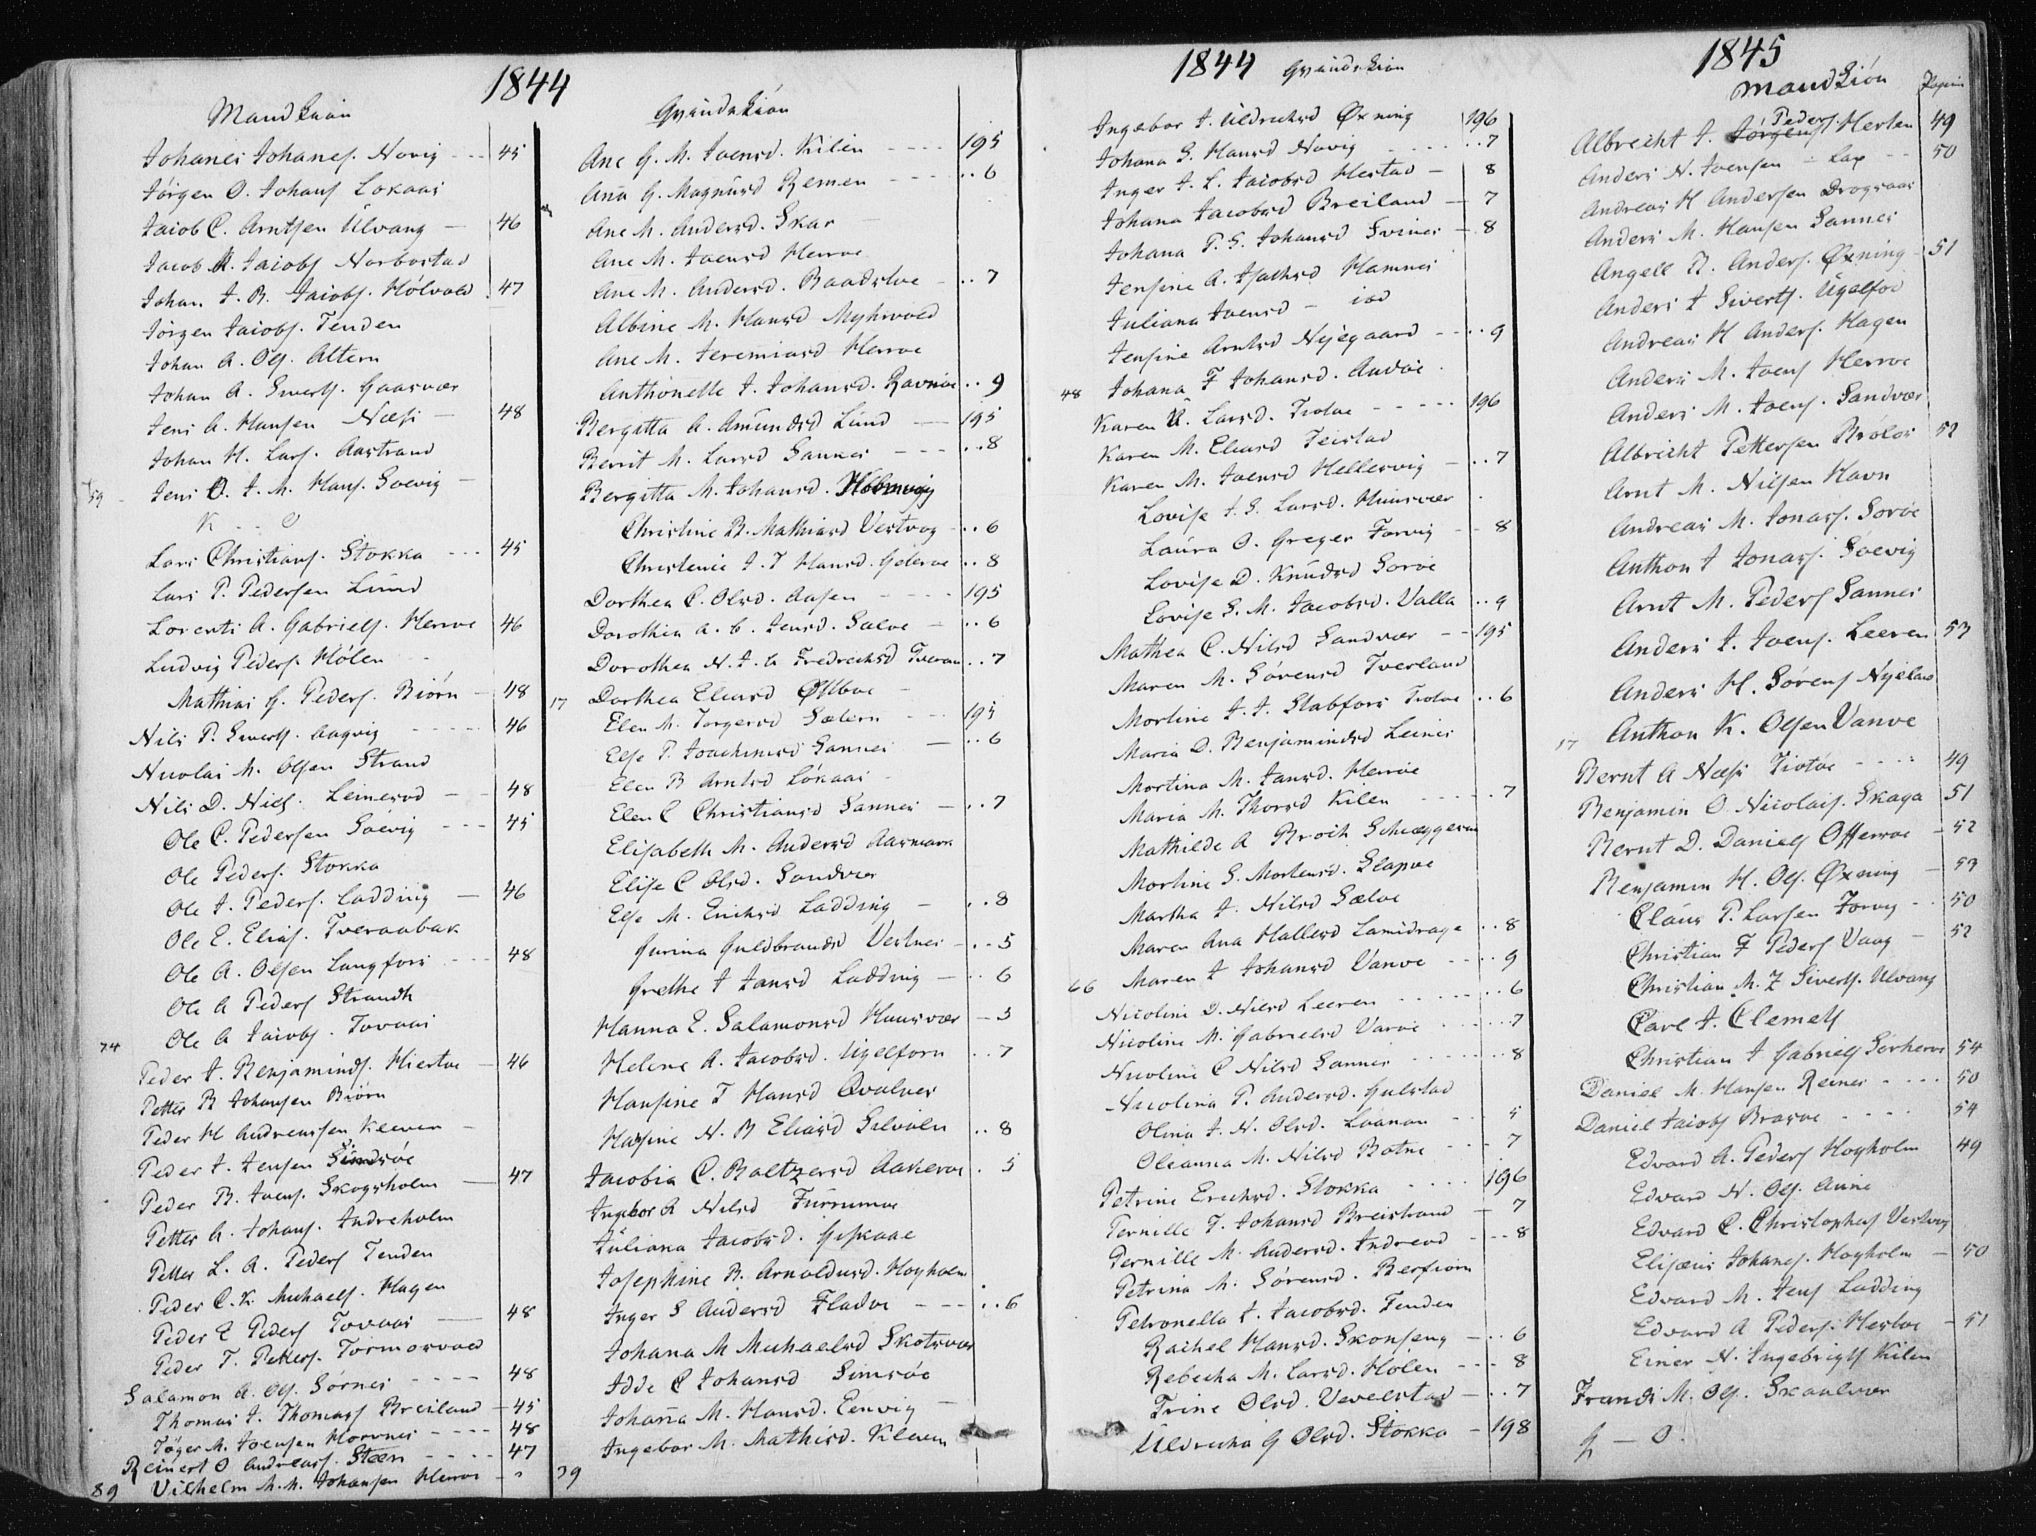 1844
MandKiøn
Johanes Johanes. Novig --- 45
Jørgen O. Johans Lokaas
Jacob C. Arntsen Ulvang — 46
Jacob M. Jacobs Norbostad
Johan J. B. Jacobs. Hólvold 47
Jörgen Jacobs. Tenden
Johan A. Ols. Altern
Johan A. Siverts. Gaasvær
Jens A. Hansen Næss — 48
Johan H. Lars. Aastrand
59 Jens O. J. M. Hans. Soevig —
K - - O
Lars Christians. Stokka --- 45
Lars P. Pedersen Lund
Lorents A. Gabriels. Herroe 46
Ludvig Peders. Hólen
Mathias G. Peders. Biórn — 48
Nils P. Siverts. Aagvig ---- 46
Nicolai M. Olsen Strand
Nils D. Niels. Leinesod -- 48
Ole C. Pedersen Soevig --- 45
Ole Peders. Stokka
Ole J. Peders. Ladding — 46
Ole E. Elias. Tveraabak
Ole A. Olsen Langfors --- 48
Ole A Peders Strandh
74 Ole A Jacobs. Tovaas
Peder J. Benjamins. Hiertøe — 46
Petter B Johansen Biórn
Peder H Andreassen Kleven —
Peder J. Jensen Simsóe
Peder B. Joens. Skogsholm — 47
Petter A. Johans. Andreholm
Petter L. A. Peders Tenden
Peder C. K. Michaels. Hagen
Peder E Peders Tovaas — 48
Peder T. Petters. Tormosvold
Salamon A. Ols. Sórnes ---- 48
Thomas J. Thomass Breiland — 45
Tóger M. Joensen Horvnes ---- 48
Reinert O Andreas. Steen ---- 47
89 Vilhelm M. M. Johansen Herroe --
QvindeKión
Ane G. M. Joensd. Kilen ---- 195
Ana G. Magnusd Remen ---- ..6
Ane M. Andersd. Skar —
Ane M. Joensd Herroe
Ane M. Andersd. Baadstoe — ..7
Albine M. Hansd Myhrvold
Ane M. Jeremiasd Herroe
Anthonette J. Johansd. Ravnóe ..9
Bergitta A. Amundsd Lund — 195
Berrit M. Larsd Sannes --- ..8
Bergitta M. Johansd. Holmvig
Christine B. Mathiasd Vestvog -..6
Christence J. T Hansd. Gderoe ..8
Dorthea C. Olsd. Aasen ---- 195
Dorothea A. C. Jensd. Salve — ..6
Dorothea N. J. A Fredricksd Tveraa ..7
17 Dorthea Eliasd Offboe —
Elen M. Torgersd Sælern --- 195
Else P. Joachimsd Sannes — ..6
Elen B Arntsd Lokaas -
Elen C Christiansd Sannes — ..7
Elisabeth M. Andersd Aasmark
Elise C Olsd. Sandvær
Else M. Ericksd Ladding — ..8
Gurina Guldbrandsd Vestnes — ..5
Grethe J Jansd Ladding — ..6
Hanna E. Salamonsd Huusvær — 5
Helene A. Jacobsd. Ugelforn ..7
Hansine T Hansd Qvalnes
Hansine N. B Eliasd Salvolen ..8
Jacobia C. Baltzersd Aakeroe . 5
Ingebor L Nilsd Furrumoe
Juliana Jacobsd. Giskaae
Josephine B. Arnoldusd. Hoyholm
Inger S Andersd Fladøe --- ..6
Johana M Michaelsd Skotsvær
Idde C Johansd Simsóe
Johana M. Hansd. Eenvig —
39 Ingebor M. Mathisd. Kleven
1844 Qvindekiön
Ingebor J. Uldricksd Øxning 196
Johana S. Hansd Novig ---- ..7
Inger J. L. Jacobsd Hestad — 8
Johana Jacobsd Breiland — 7
Johana P. S. Johansd Svines — 8
Jensine A. Isachsd Hamnes
Juliana Joensd — iod
Jensine Arntsd Nyegaard -- ..9
48 Johana F Johansd. Andøe .
Karen U. Larsd. Tiotøe ----- 196
Karen M. Eliasd Teistad
Karen M. Joensd Hellesvig — ..7
Lovise J. S. Larsd. Huusvær .
Laura O. Greger Forvig -- 8
Lovise D. Knudsd Soroe
Lovise S. M. Jacobsd. Valla ..9
Mathea C. Nilsd Sandvær -- 195
Maren M. Sørensd Tverland
Mortine J. J. Slabfors Tiotøe ..6
Maria D. Benjaminsd Leines
Mortina M. Jansd. Herróe
Maria M. Thorsd Kilen ---- 7
Mathilde A Broch Schieggesn
Mortine S. Mortensd. Slapøe
Martha J. Nilsd Sælvo
Maren Ana Hallesd Lamidrage ..8
66 Maren J Johansd Vanvo --- 9
Nicoline D. Nilsd Leeren ---- ..6
Nicoline M. Gabrielsd Varóe ---- 7
Nicoline C Nilsd Sannes ---- ..8
Nicolina P. Andersd. Gulstad
Olina J. N. Olsd. Laanan --- 5
Oleanna M. Nilsd Botne --- 7
Petrine Ericksd. Stokka ---- 196
Pernille T. Johansd Breistrand — 7
Pernille M. Andersd. Indreod --- 8
Petrina M. Sórensd. Bersiorn
Petronella J. Jacobsd. Tenden
Rachel Hansd. Skonseng — ..6
Rebecka M. Larsd. Hólen --- 8
Trine Olsd. Vevelstad — ..7
Uldricka G Olsd. Stokka — 198
1845
MandKión Pagina
Albrecht J. Peders. Herlen 49
Anders N. Joensen — Lax -- 50
Andreas H Andersen Drogsaas
Anders M. Hansen Sannes
Angell H. Anders. Øxning — 51
Anders J Siverts. Ugelfor
Andreas H Anders. Hagen
Anders M. Joens Herroe
Anders M. Joens. Sandvær
Albricht Pettersen Brolos 52
Arnt M. Nilsen Havn
Andreas M. Jonass. Soróe
Anthon J Jonass. Soevig
Arnt M. Peders Sannes
Anders J. Joens. Leeren 53
Anders H. Sórens Nyeland
17 Anthon K. Olsen Vanve
Bernt A Næss Tiotóe ---- 49
Benjamin O. Nicolais. Skaga 51
Bernt D. Daniels Offerroe — 52
Benjamin H. Ols. Øxning — 53
Claus P. Larsen Forvig -- 50
Christian F Peders Vaag — 52
Christian M. Z Siverts. Ulvang
Carl J. Clemets
Christian J Gabriels Serheroe 54
Daniel M. Hansen Reines ---- 50
Daniel Jacobs Brasøe ---- 54
Edvard A. Peders Hoyholm 49
Edvard N. Ols. Aune
Edvard C. Christophers Vestvog
Elisæus Johanes. Hoyholm — 50
Edvard M. Jens Ladding
Edvard A Peders. Hestøe — 51
Einer N. Ingebrigts Kilen
Frands M. Ols. Skaalvær
G — O.